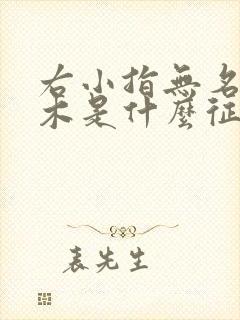 右小指無名
木是什麼征
表先生